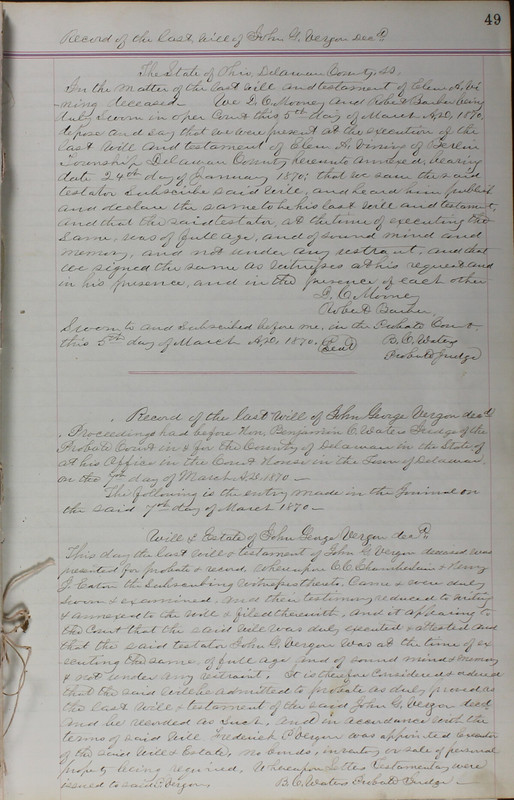 49
Record of the last Will of John G. Vergon Dec'd
The State of Ohio, Delaware County, SS.
In the matter of the last will and testament of Clem A. Vi
ning deceased We G. C. Mooney and Robert Barber being
duly sworn in open Court this 5th day of March A.D. 1870,
depose and say that we were present at the execution of the
last Will and testament of Clem A. Vining of Berlin
Township Delaware County hereunto annexed, bearing
date 24th day of January 1870; that we saw the said
testator subscribe said Will, and heard him publish
and declare the same to be his last Will and testament,
and that the said testator, at the time of executing the
same, was of full age, and of sound mind and
memory, and not under any restraint, and that
we signed the same as witnesses at his request and
in his presence, and in the presence of each other
G. C. Mooney
Robert Barber
Sworn to and subscribed before me, in the Probate Court
this 5th day of March A.D. 1870. (Seal) B. C. Waters
Probate Judge
Record of the last Will of John George Vergon dec'd
Proceedings had before Hon. Benjamin C. Waters Judge of the
Probate Court in & for the County of Delaware in the State of
at his Office in the Court House in the Town of Delaware
on the 7th day of March A.D. 1870 —
The following is the entry made in the Journal on
the said 7th day of March 1870 —
Will & Estate of John George Vergon dec'd
This day the last Will & testament of John G. Vergon deceased was
presented for probate & record, whereupon C. C. Chamberlain & Henry
J. Eaton the subscribing witnesses thereto, came & were duly
sworn & examined, and their testimony reduced to writing
& annexed to the Will & filed therewith, and it appearing to
the Court that the said Will was duly executed & attested and
that the said testator John G. Vergon was at the time of ex
ecuting the same, of full age and of sound mind & memory
& not under any restraint. It is therefore considered & ordered
that the said Will be admitted to probate as duly proved as
the last Will & testament of the said John G. Vergon dec'd
and be recorded as such. And in accordance with the
terms of said Will Frederick P. Vergon was appointed Executor
of the said Will & Estate, no bonds, inventory or sale of personal
property being required, Whereupon letters Testamentary were
issued to said Vergon. B. C. Waters Probate Judge —